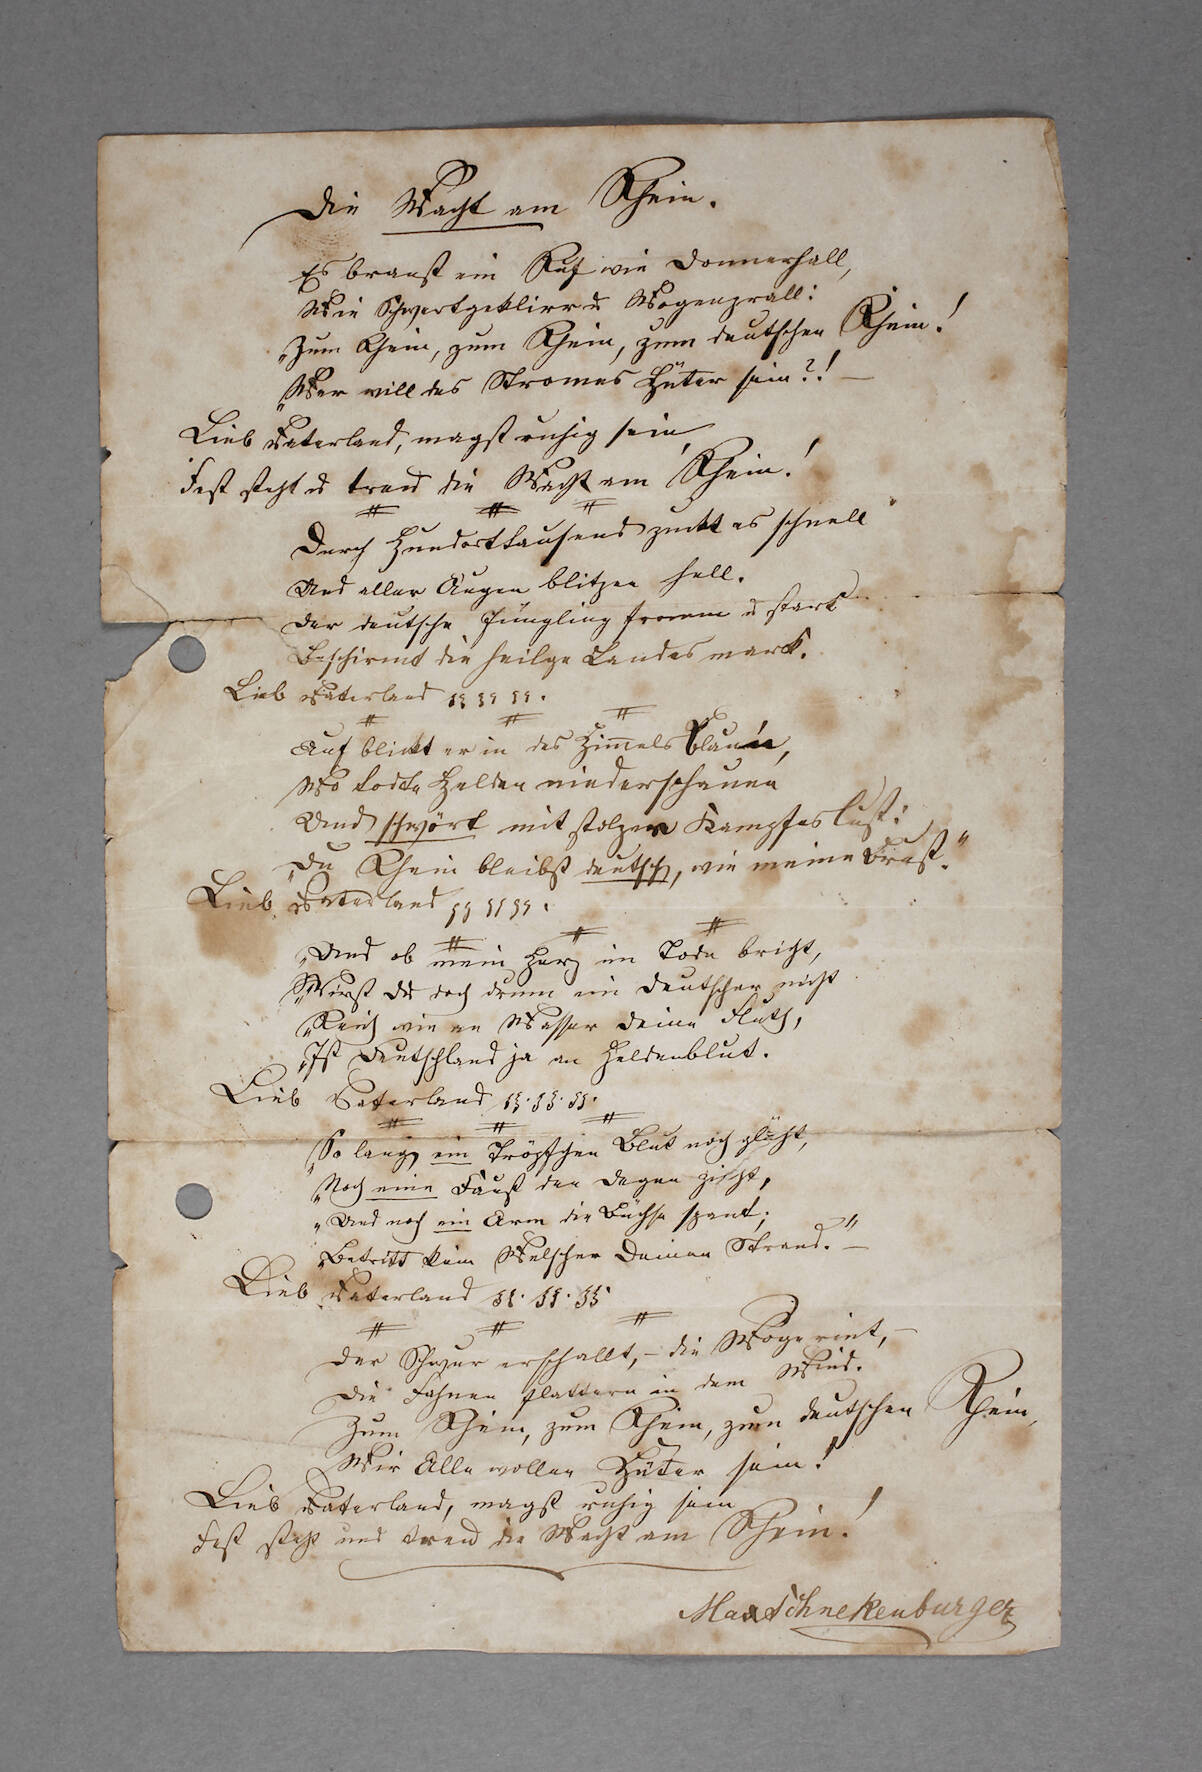 Die Wacht am Rhein.
Es braust ein Ruf wie Donnerhall,
Wie Schwertgeklirr u Wogenprall:
„Zum Rhein, zum Rhein, zum deutschen Rhein!
„Wer will des Stromes Hüter sein?! —
Lieb Vaterland, magst ruhig sein
Fest steht u treu die Wacht am Rhein!
Durch Hunderttausend zuckt es schnell
Und aller Augen blitzen hell.
Der deutsche Jüngling fromm u stark
Beschirmt die heilge Landesmark.
Lieb Vaterland
Auf blickt er in des Himmels Blau'n,
Wo todte Helden niederschauen
Und schwört mit stolzer Kampfeslust:
„Du Rhein bleibst deutsch, wie meine Brust."
Lieb Vaterland
„Und ob mein Herz im Tode bricht,
„Wirst du doch drum ein Deutscher nicht
„Reich wie an Wasser deine Fluth,
„Ist Deutschland ja an Heldenblut.
Lieb Vaterland
„So lang ein Tröpfchen Blut noch glüht,
„Noch eine Faust den Degen zieht,
„Und noch ein Arm die Büchse spant;
„Betritt kein Welscher Deinen Strand." —
Lieb Vaterland
Der Schwur erschallt, – die Woge rint, –
Die Fahnen flattern in dem Wind.
Zum Rhein, zum Rhein, zum deutschen Rhein,
Wir Alle wollen Hüter sein!
Lieb Vaterland, magst ruhig sein
Fest steht und treu die Wacht am Rhein!
Max Schnekenburger